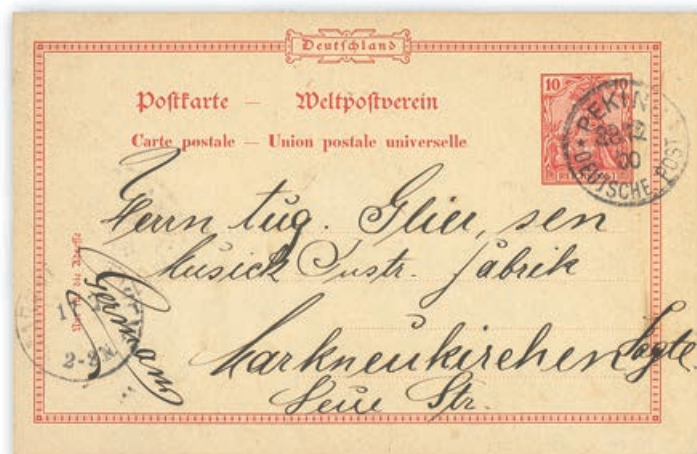 Deutschland
Postkarte — Weltpostverein
Carte postale — Union postale universelle
10
PEKING
00
DEUTSCHE POST
Herrn Aug. Glier, sen
Musick Instr. Fabrik
Germany
Markneukirchen Vogtl.
Neue Str.
Nur für die Adresse
2-3N